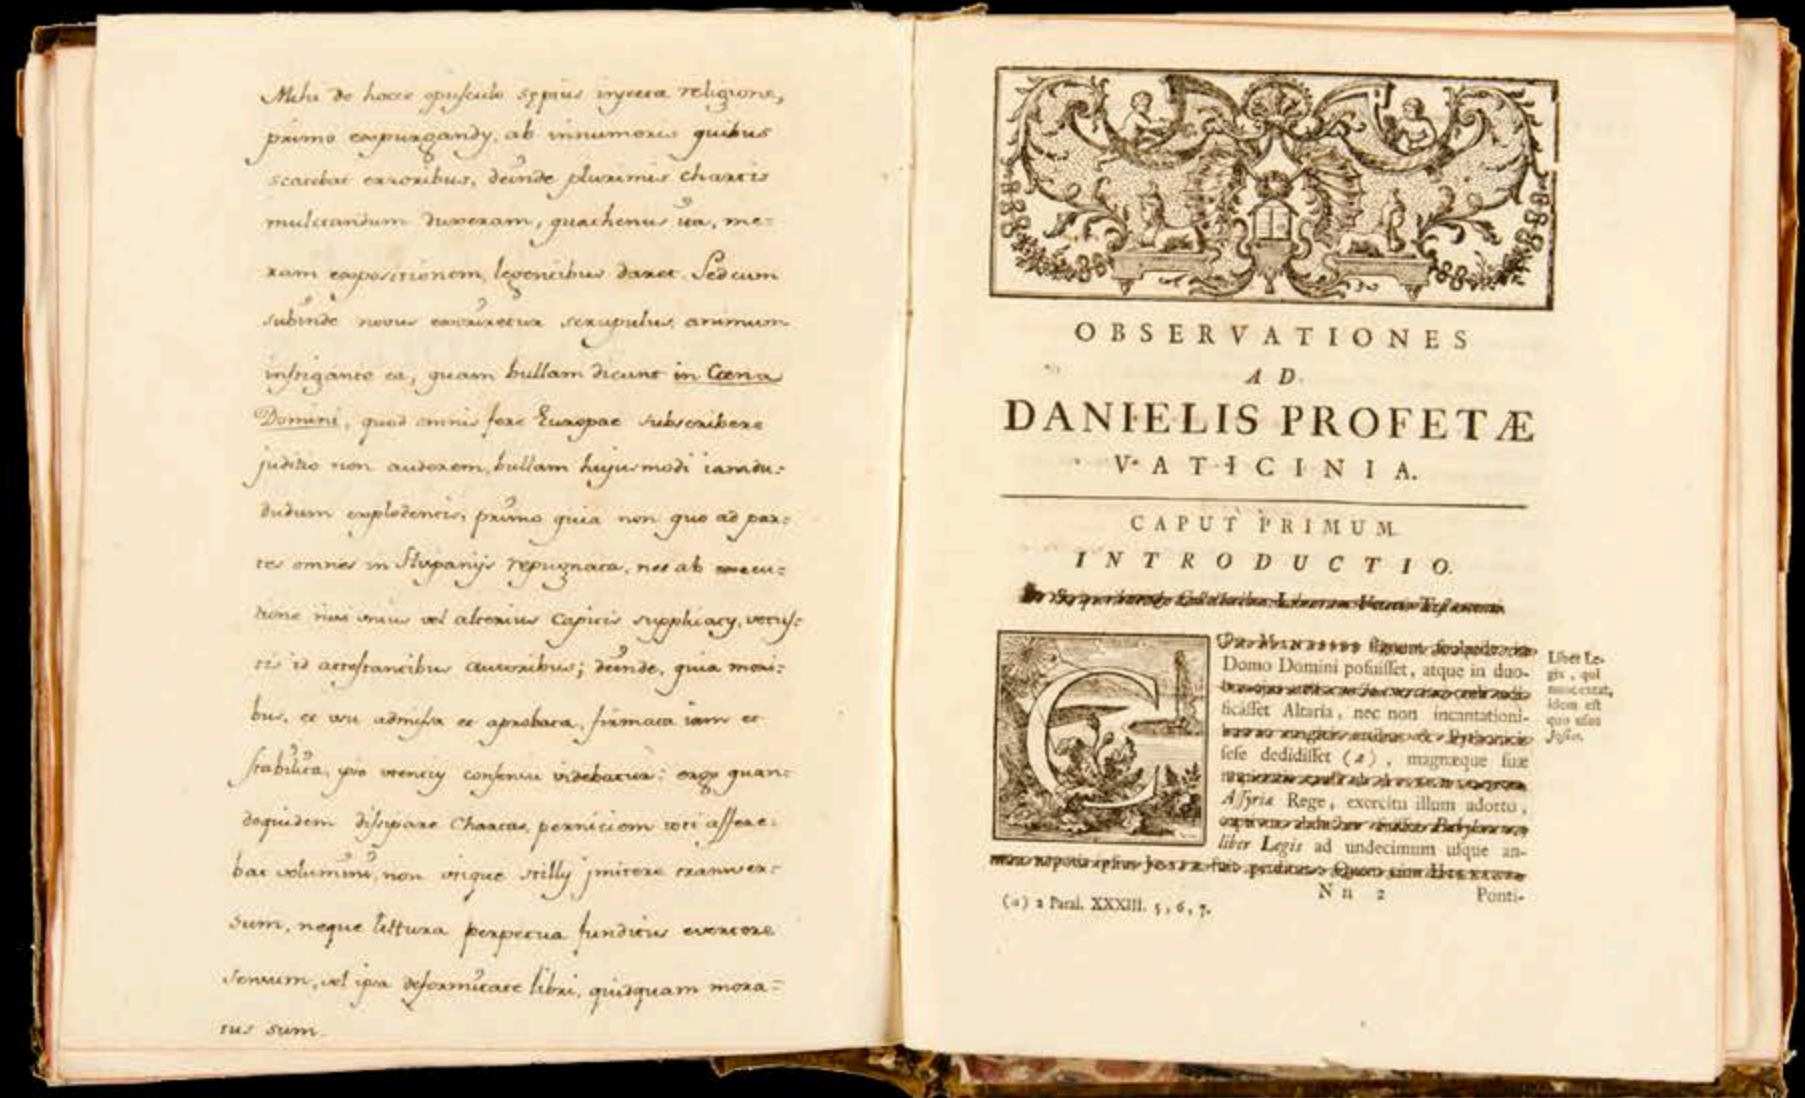 Mihi de hocce opusculo sępius injecta religione,
primo expurgandi, ab innumeris quibus
scatebat erroribus, deinde plurimis chartis
mulctandum duxeram, quathenus ita, me=
ram expositionem, legentibus daret. Sed cum
subinde novus exoriretur scrupulus, animum
instigante ea, quam bullam dicunt in Cœna
Domini, quod omnis fere Europae subscribere
juditio non auderem, bullam hujusmodi iamdu=
dudum explodentis, primo quia non quo ad par=
tes omnes in Hispanijs repugnata, nec ab execu=
tione nisi unius vel alterius Capitis supplicatũ, vetus=
tis id attestantibus auctoribus; deinde, quia mori=
bus, et usu admissa et aprobata, firmata iam et
stabilita, ipso utentiũ consensu videbatur: ergo quan=
doquidem dissipare Chartas, perniciem toti affere=
bat volumini, non utique stilli jmitere transver=
sum, neque littura perpetua funditus evertere
sensum, vel ipsa deformitate libri, quidquam mora=
tus sum.
OBSERVATIONES
AD
DANIELIS PROFETÆ
VATICINIA.
CAPUT PRIMUM.
INTRODUCTIO.
Domo Domini posuisset, atque in duo-
ficasset Altaria, nec non incantationi-
sese dedidisset (a), magnæque suæ
Assyriæ Rege, exercitu illum adorto,
liber Legis ad undecimum usque an-
Liber Le-
gis, qui
nunc extat,
idem est
quo usus
Josias.
N n 2 Ponti-
(a) 2 Paral. XXXIII. 5, 6, 7.